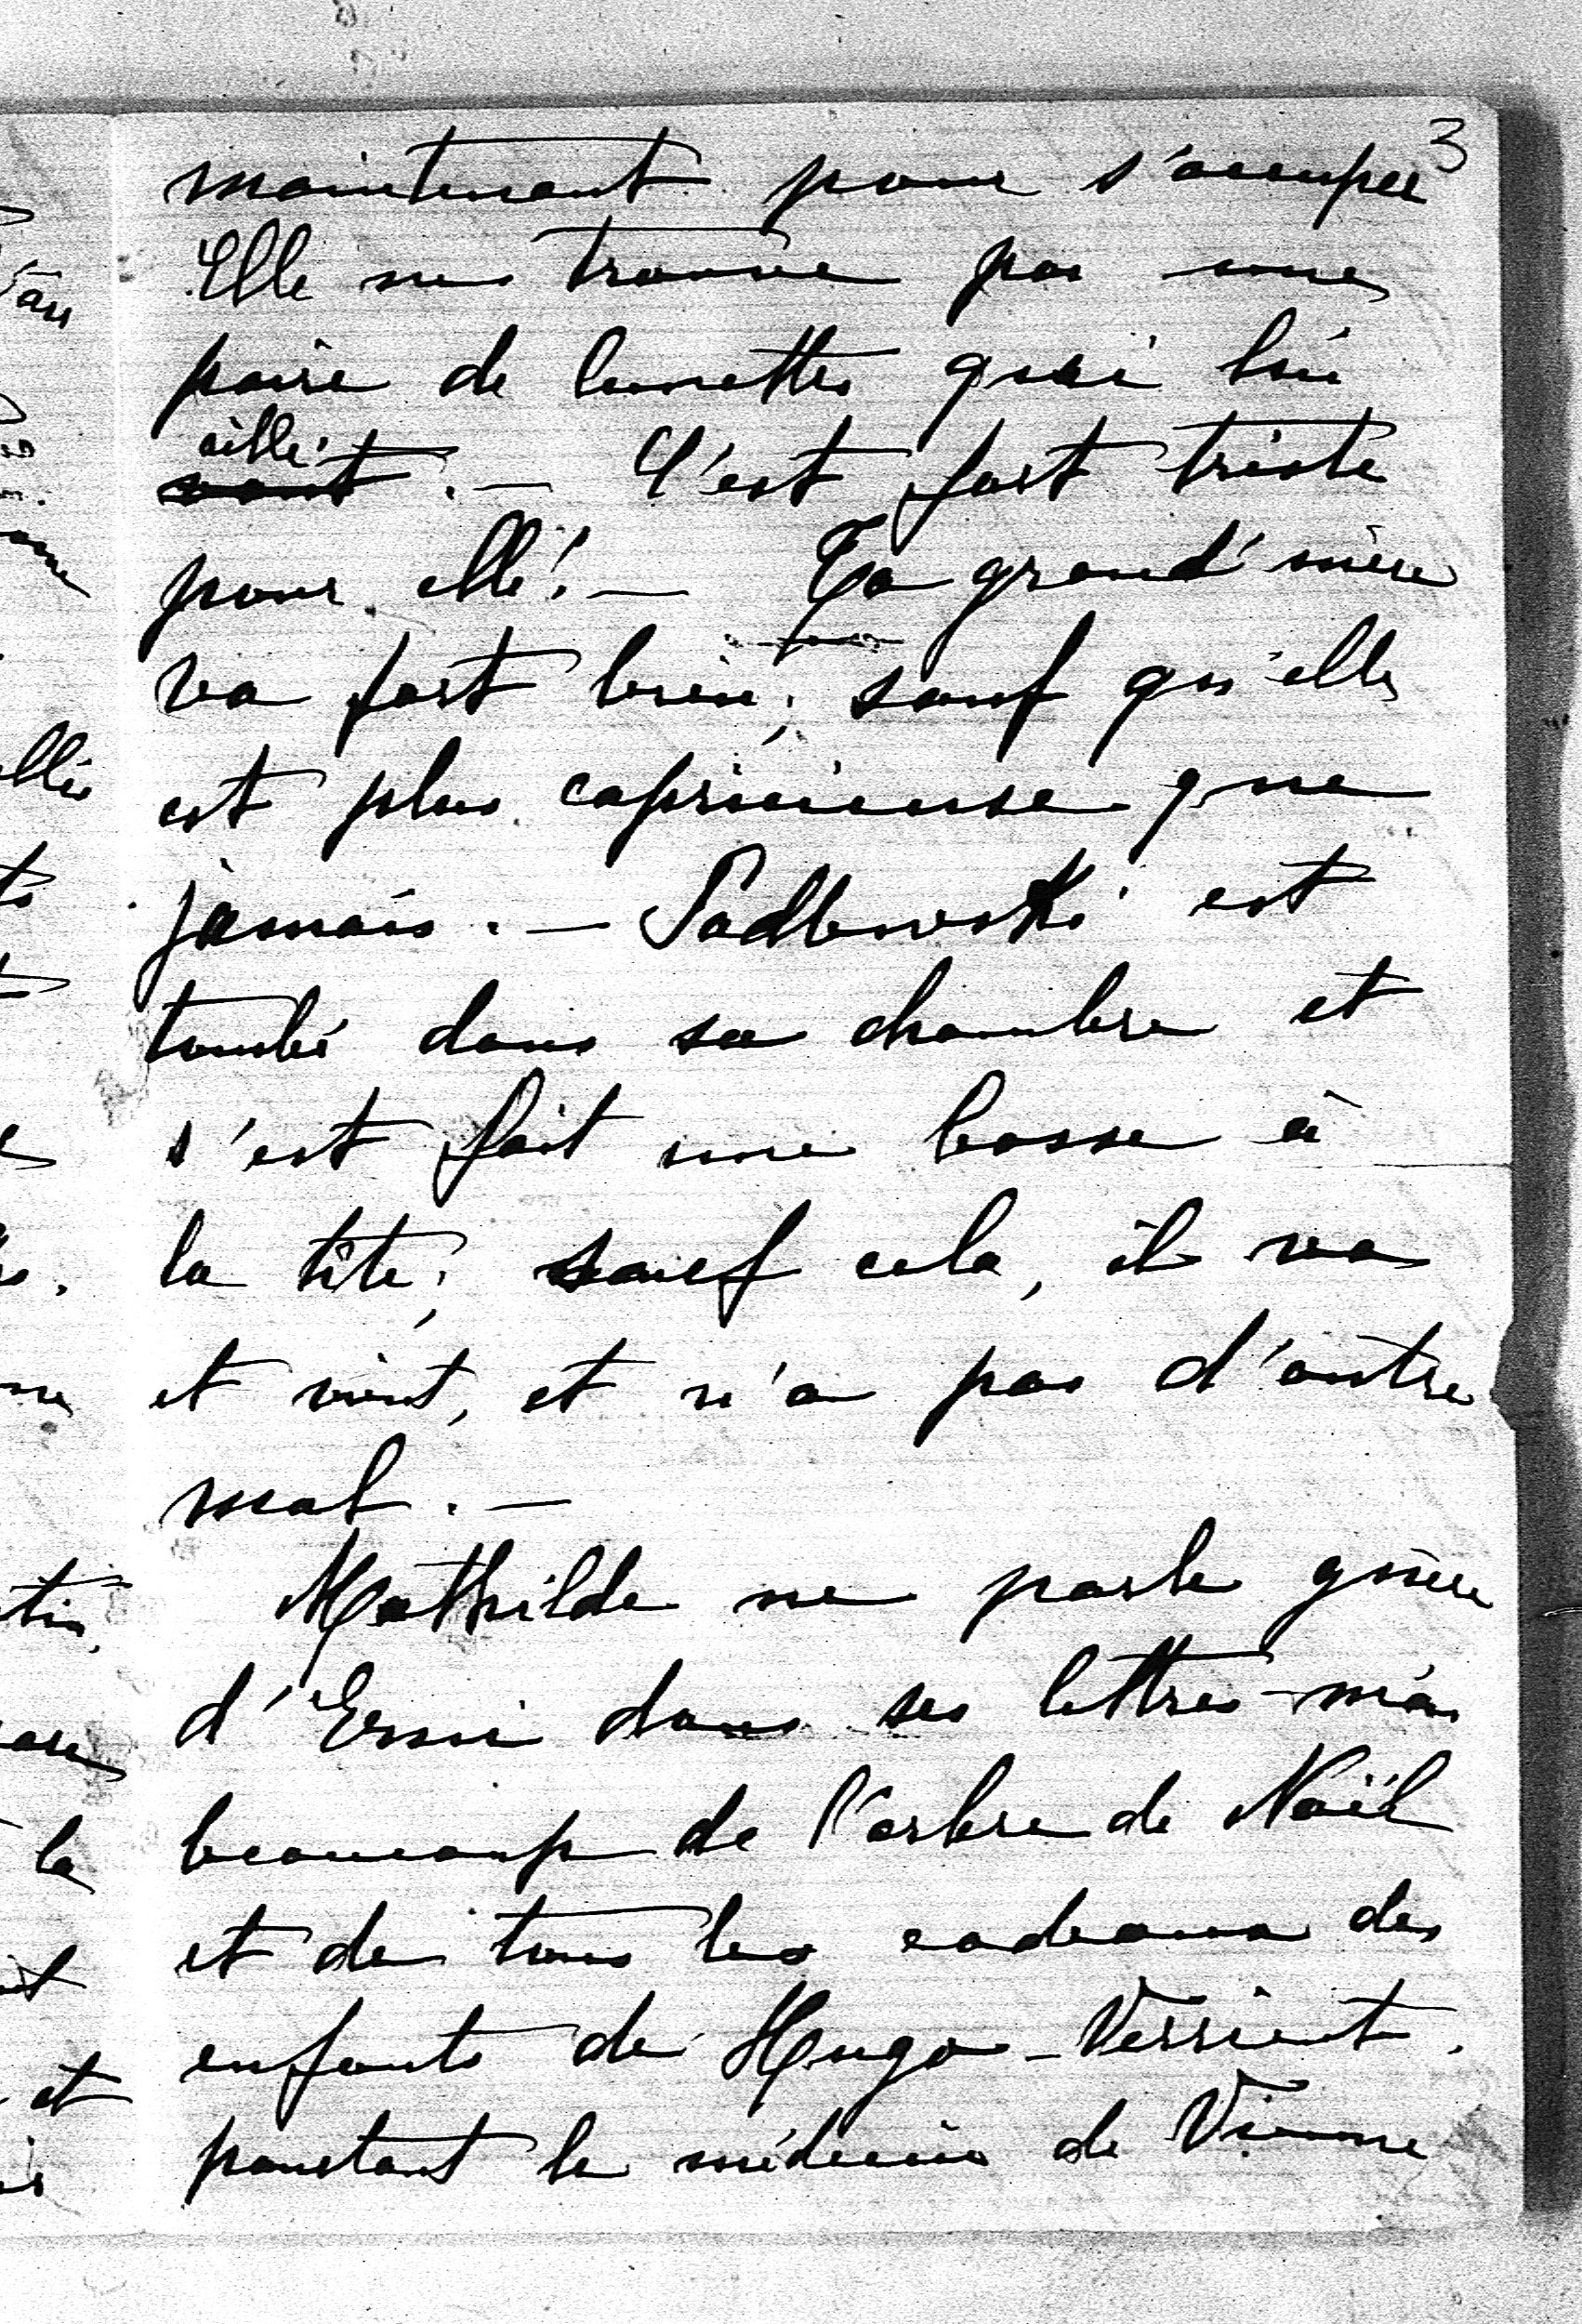 3
maintenant pour s'occuper
Elle ne trouve pas une
paire de lunettes qui lui
aille
vont . — C'est fort triste
pour elle ! — Ta grand'mère
va fort bien ; sauf qu'elle
est plus capricieuse que
jamais . — Padlewski est
tombé dans sa chambre et
s'est fait une bosse à
la tête ; sauf cela, il va
et vient, et n'a pas d'autre
mal . —
Mathilde ne parle guère
d'Erni dans ses lettres – mais
beaucoup de l'arbre de Noël
et de tous les cadeaux des
enfants de Hugo – Verrient .
pourtant le médecin de Vienne